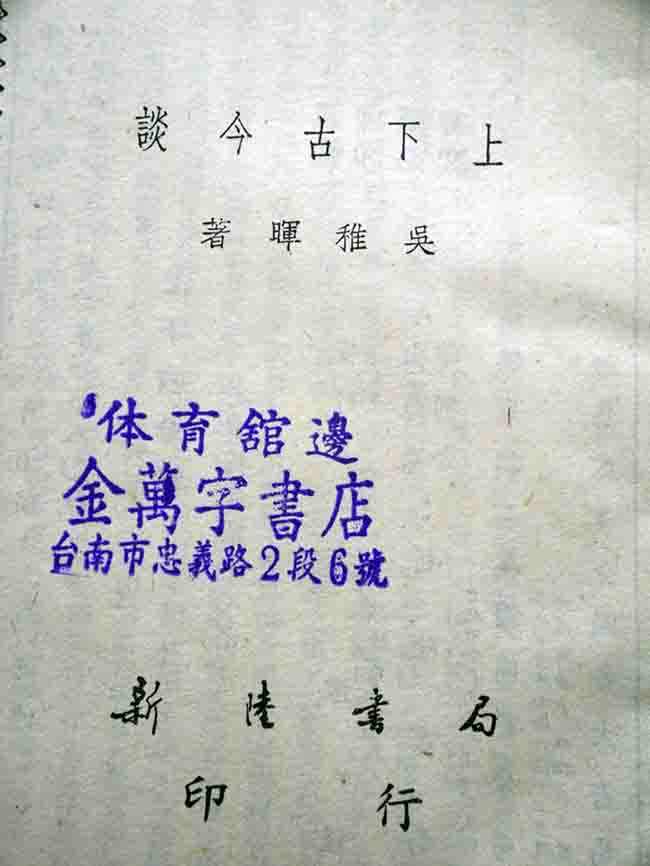 上下古今談
吳稚暉著
体育舘邊
金萬字書店
台南市忠義路2段6號
新陸書局
印行